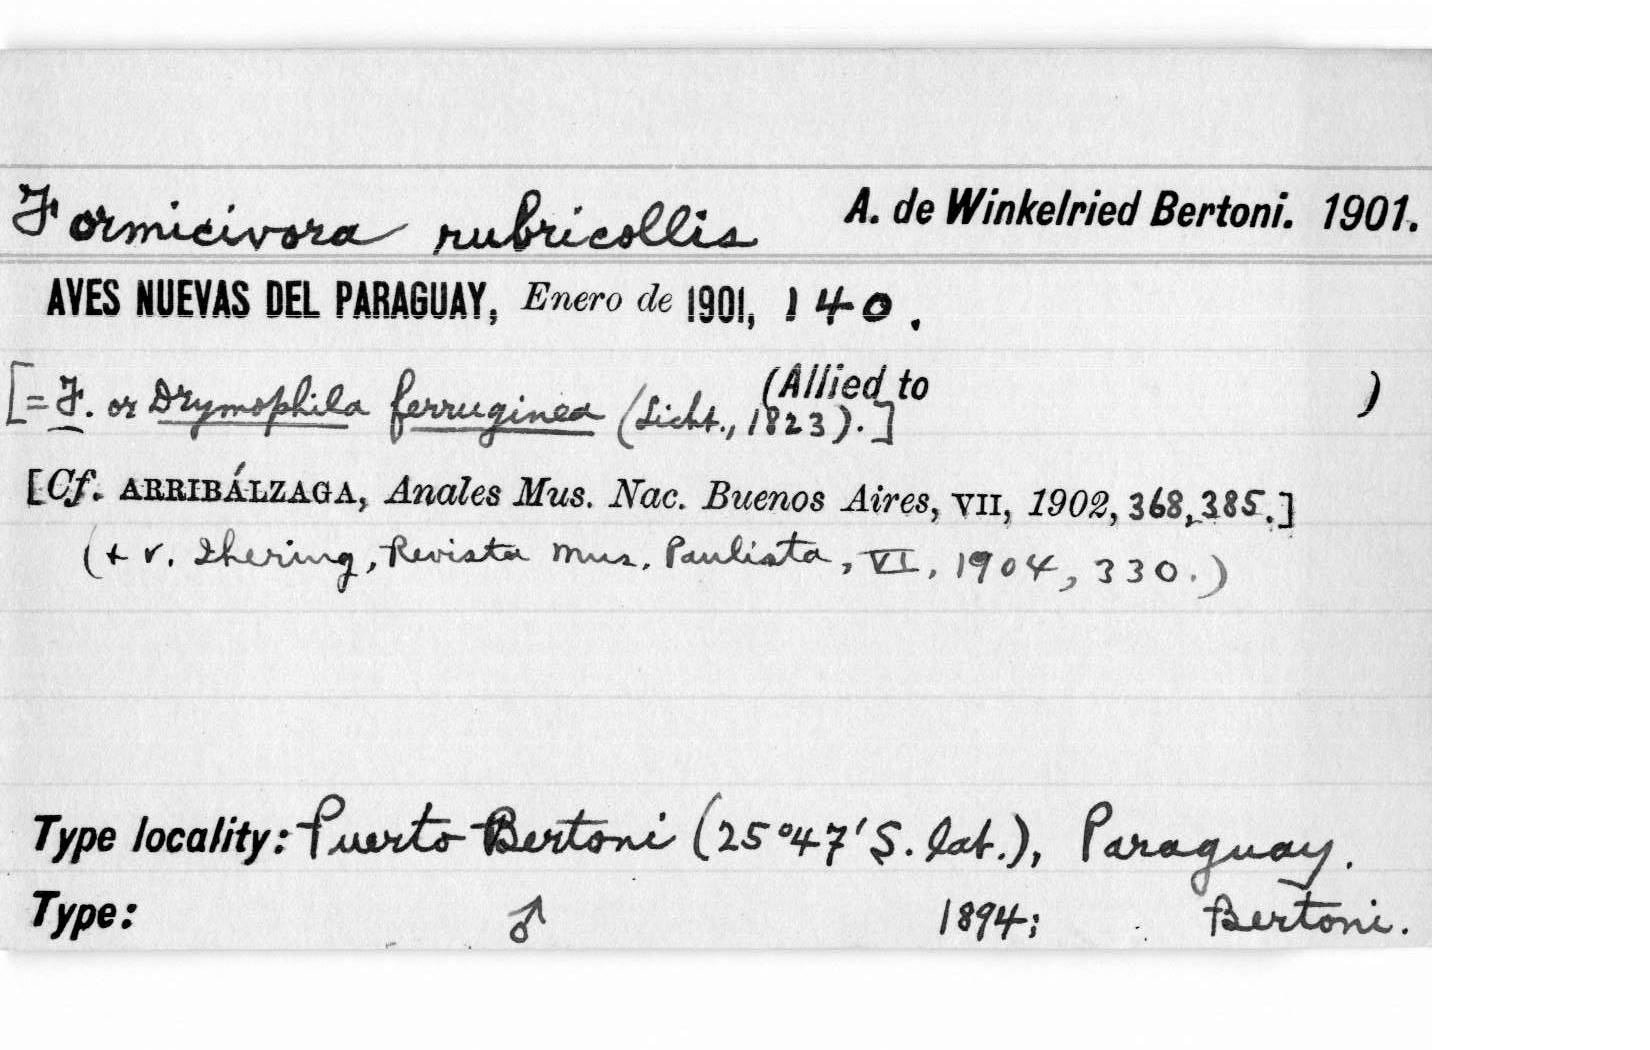 Formicivora rubricollis A. de Winkelried Bertoni. 1901.
AVES NUEVAS DEL PARAGUAY, Enero de 1901, 140.
(Allied to )
[= F. or Drymophila ferruginea (Licht., 1823).]
[Cf. ARRIBÁLZAGA, Anales Mus. Nac. Buenos Aires, VII, 1902, 368, 385.]
(+ v. Ihering, Revista Mus. Paulista, VI, 1904, 330.)
Type locality: Puerto Bertoni (25°47' S. lat.), Paraguay.
Type: ♂ 1894; Bertoni.